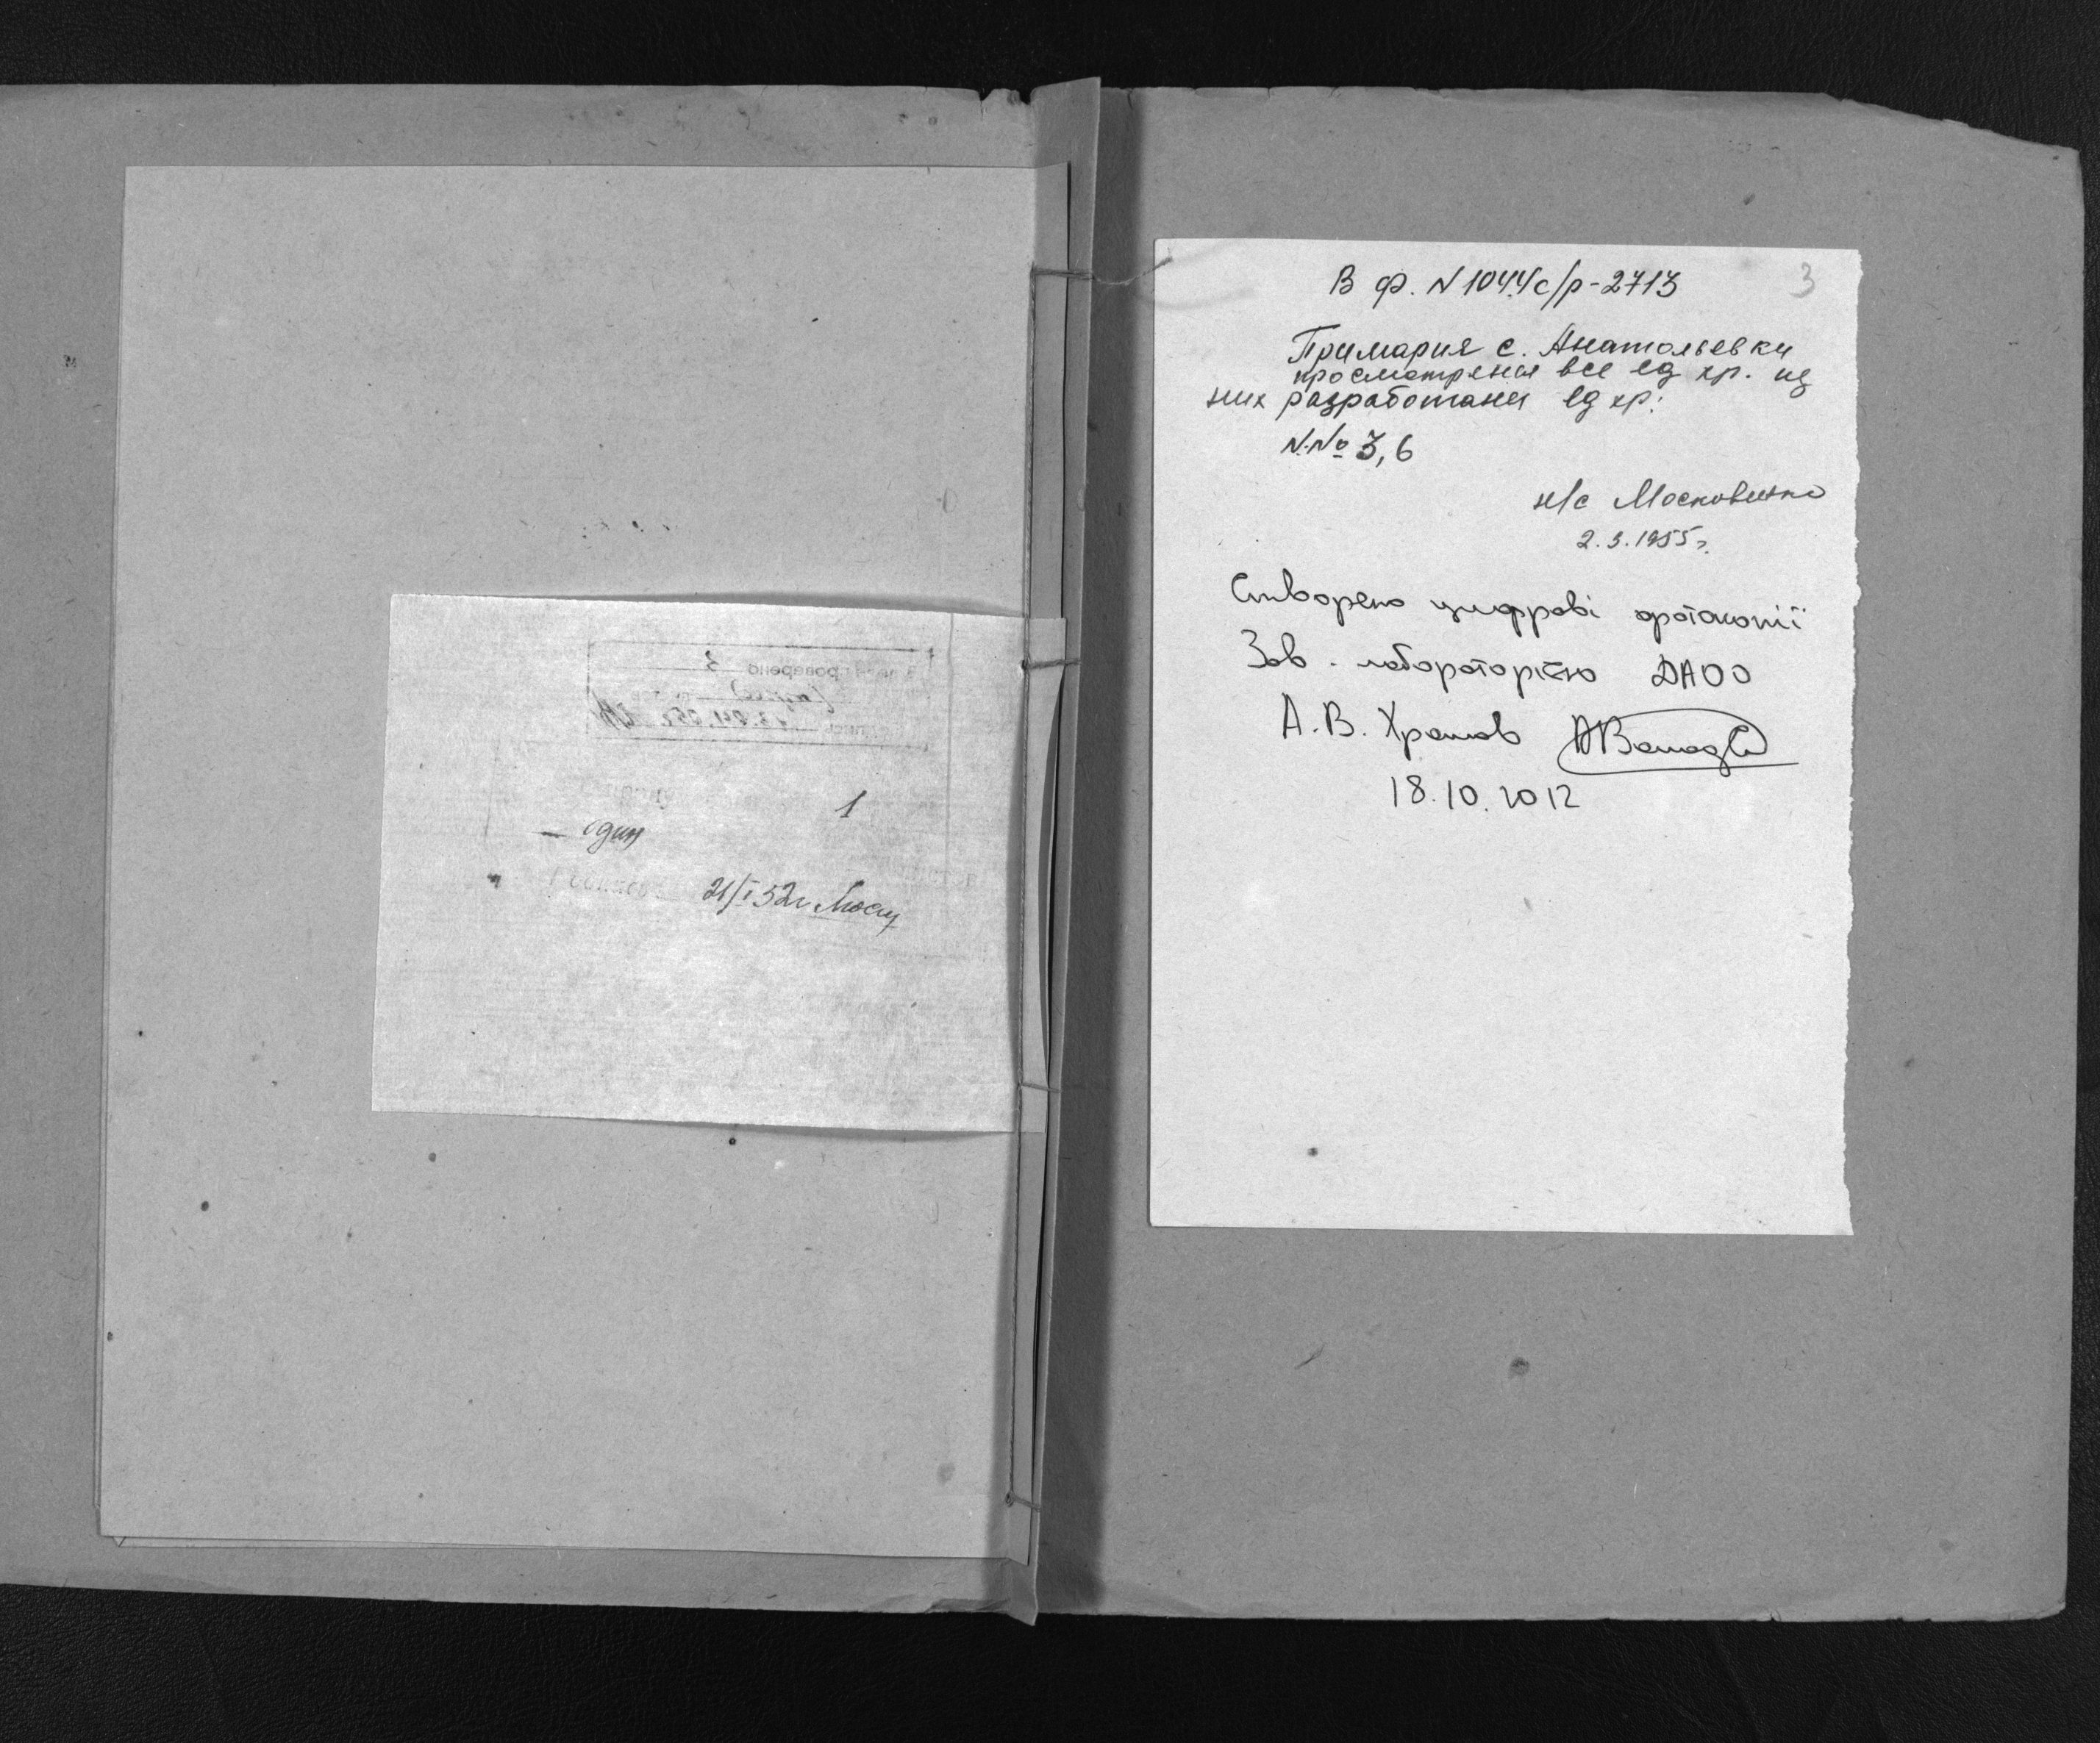 1
— один
21/I 52г
3
В ф. N 1044с/р-2713
Примария с. Анатольевки
просмотрены все ед хр. из
них разработаны ед хр:
N.№ 3, 6
н/с Московченко
2.3.1955г.
Створено цифрові фотокопії
Зав. лабораторією ДАОО
А.В. Храмов
18.10.2012